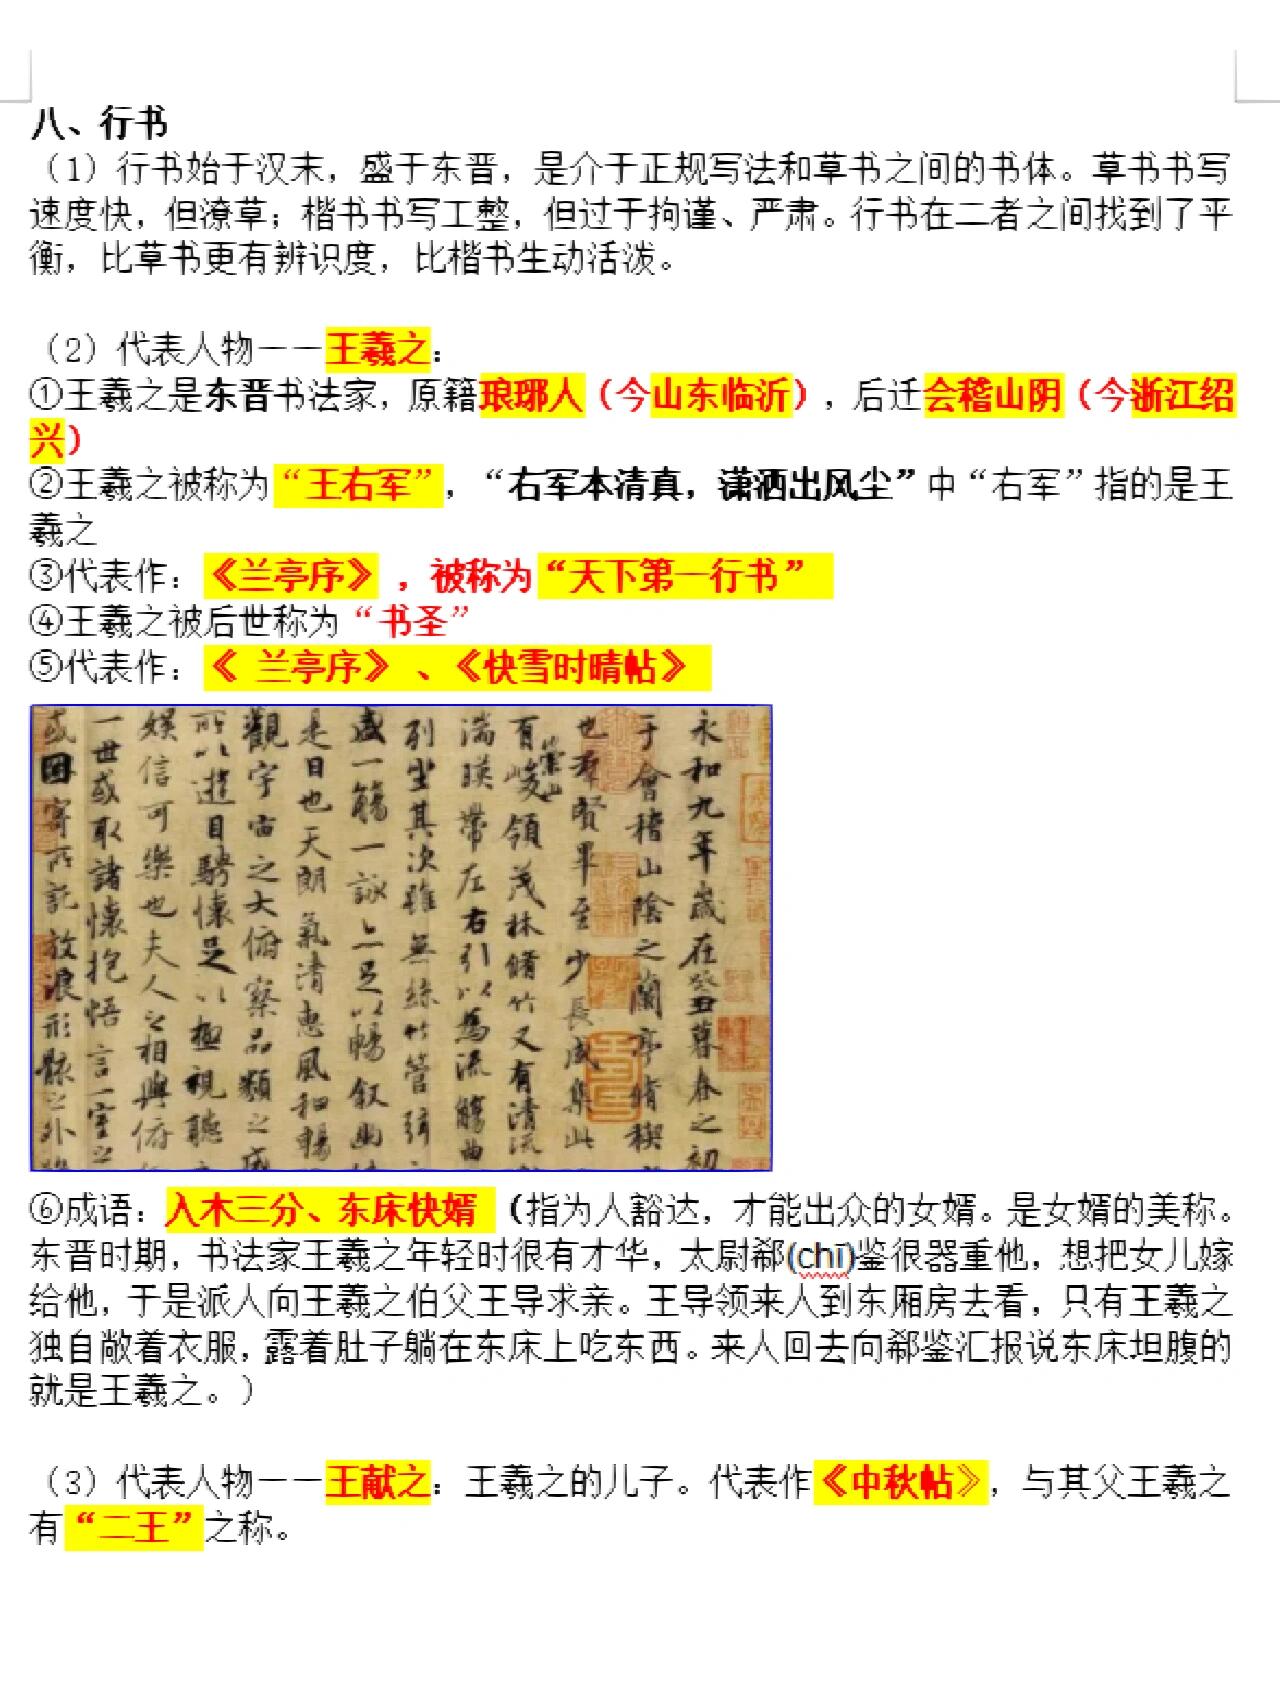 八、行书
（1）行书始于汉末，盛于东晋，是介于正规写法和草书之间的书体。草书书写
速度快，但潦草；楷书书写工整，但过于拘谨、严肃。行书在二者之间找到了平
衡，比草书更有辨识度，比楷书生动活泼。
（2）代表人物——王羲之：
①王羲之是东晋书法家，原籍琅琊人（今山东临沂），后迁会稽山阴（今浙江绍
兴）
②王羲之被称为“王右军”，“右军本清真，潇洒出风尘”中“右军”指的是王
羲之
③代表作：《兰亭序》，被称为“天下第一行书”
④王羲之被后世称为“书圣”
⑤代表作：《 兰亭序》 、《快雪时晴帖》
永和九年歲在癸丑暮春之初
于會稽山陰之蘭亭脩禊
也羣賢畢至少長咸集此
有崇山峻領茂林脩竹又有清流
湍暎帶左右引以為流觴曲
列坐其次雖無絲竹管弦
盛一觴一詠亦足以暢敘幽
是日也天朗氣清惠風和暢
觀宇宙之大俯察品類之盛
所以遊目騁懷足以極視聽
娛信可樂也夫人之相與俯
一世或取諸懷抱悟言一室之
或因寄所託放浪形骸之外
⑥成语：入木三分、东床快婿（指为人豁达，才能出众的女婿。是女婿的美称。
东晋时期，书法家王羲之年轻时很有才华，太尉郗(chī)鉴很器重他，想把女儿嫁
给他，于是派人向王羲之伯父王导求亲。王导领来人到东厢房去看，只有王羲之
独自敞着衣服，露着肚子躺在东床上吃东西。来人回去向郗鉴汇报说东床坦腹的
就是王羲之。）
（3）代表人物——王献之：王羲之的儿子。代表作《中秋帖》，与其父王羲之
有“二王”之称。